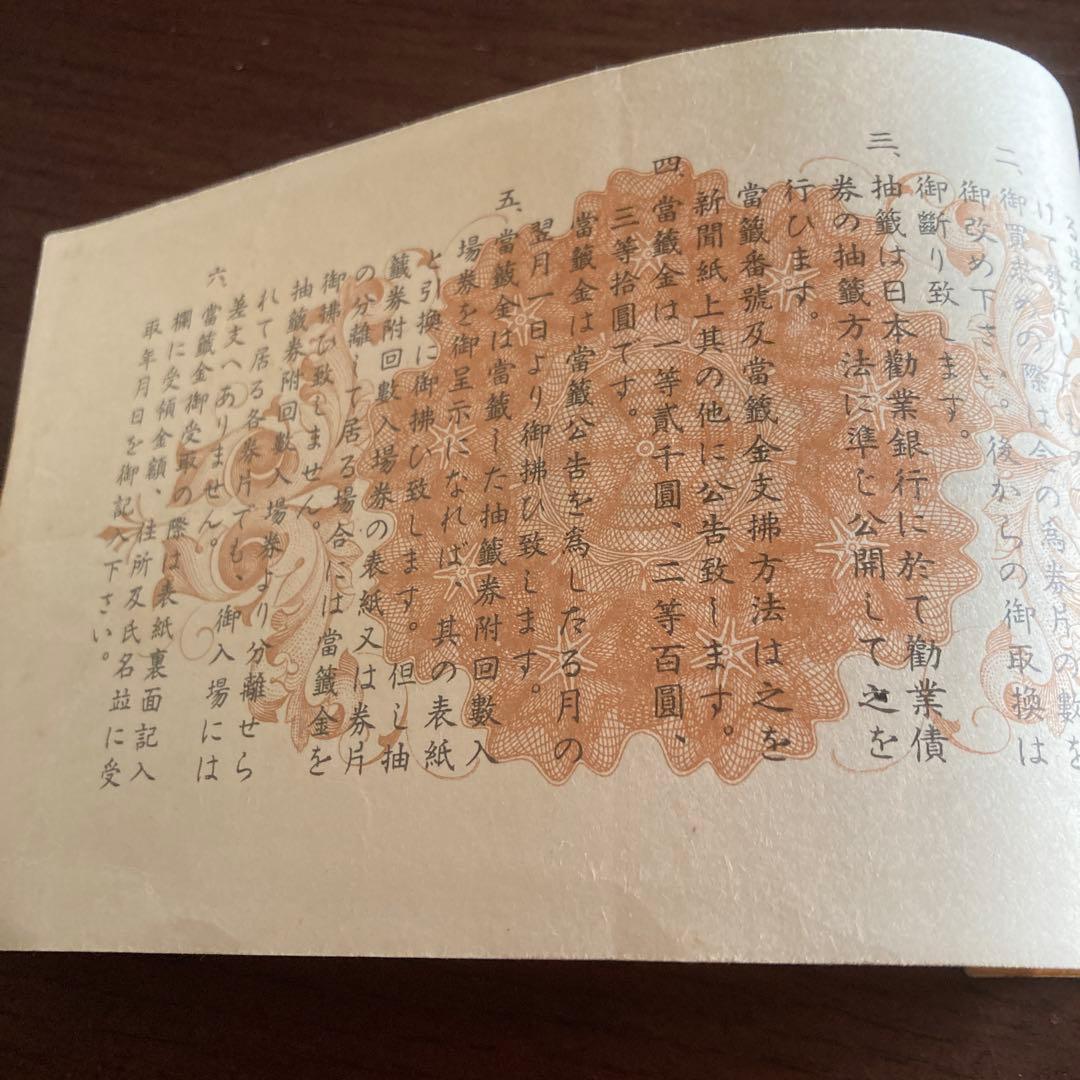 け、發行した
券片の數を
二、御買求めの際は今の爲
御改め下さい。後からの御取換は
御斷り致します。
三、抽籤は日本勸業銀行に於て勸業債
券の抽籤方法に準じ公開して之を
行ひます。
當籤番號及當籤金支拂方法は之を
新聞紙上其の他に公告致します。
四、當籤金は一等貳千圓、二等百圓、
三等拾圓です。
當籤金は當籤公告を爲したる月の
翌月一日より御拂ひ致します。
五、當籤金は當籤した抽籤券附回數入
場券を御呈示になれば、其の表紙
と引換に御拂ひ致します。但し抽
籤券附回數入場券の表紙又は券片
の分離して居る場合には當籤金を
御拂ひ致しません。
抽籤券附回數入場券より分離せら
れて居る各券片でも、御入場には
差支へありません。
六、當籤金御受取の際は表紙裏面記入
欄に受領金額、住所及氏名竝に受
取年月日を御記入下さい。